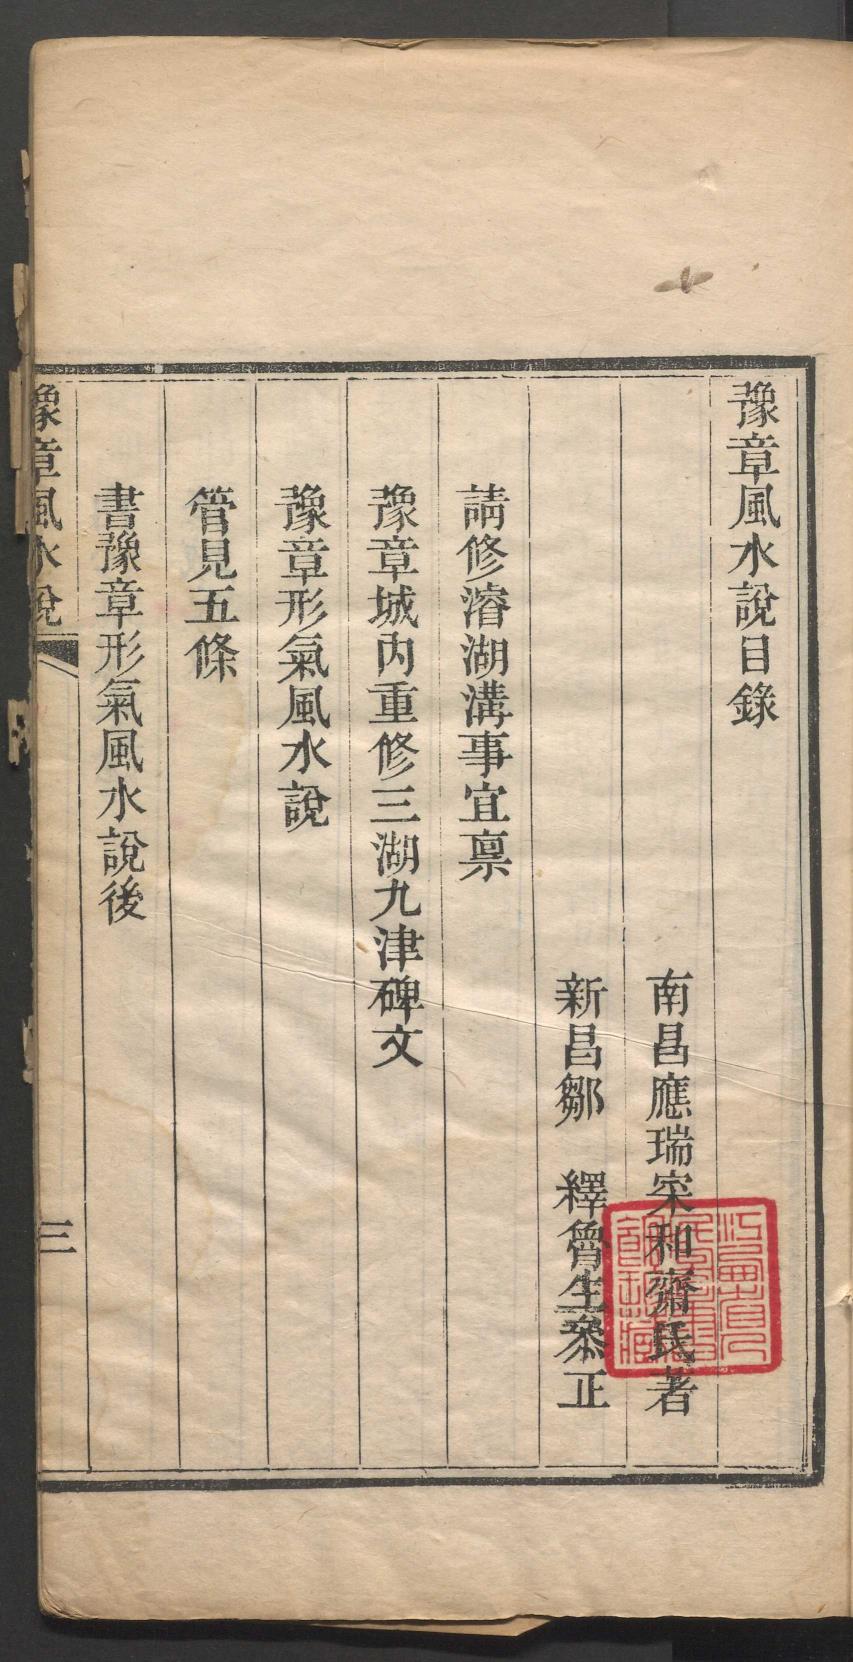 豫章風水說目錄
南昌應瑞寀和齋氏著
新昌鄒　繹魯生叅正
請修濬湖溝事宜稟
豫章城內重修三湖九津碑文
豫章形氣風水說
管見五條
書豫章形氣風水說後
豫章風水說
三